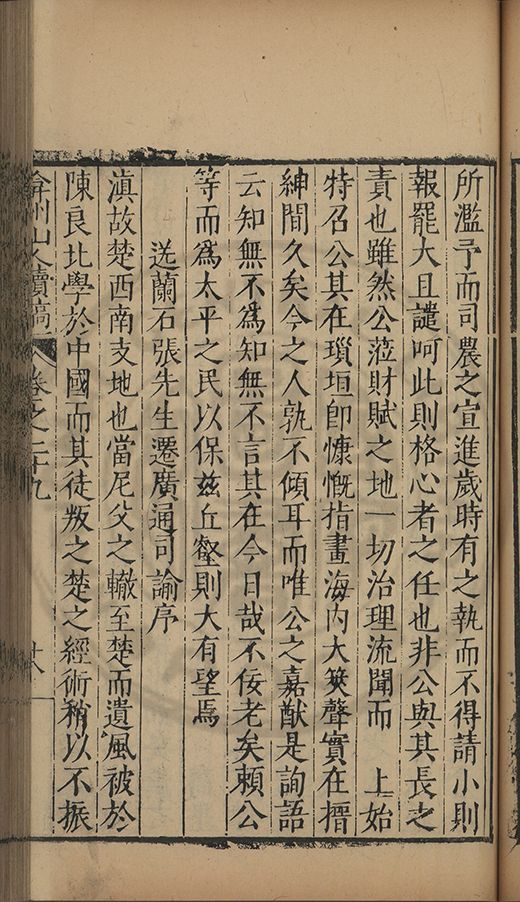 所濫予而司農之宣進歲時有之執而不得請小則
報罷大且譴呵此則格心者之任也非公與其長之
責也雖然公蒞財賦之地一切治理流聞而　上始
特召公其在瑣垣卽慷慨指畫海内大筴聲實在搢
紳間久矣今之人孰不傾耳而唯公之嘉猷是詢語
云知無不為知無不言其在今日哉不佞老矣賴公
等而為太平之民以保兹丘壑則大有望焉
送蘭石張先生遷廣通司諭序
滇故楚西南支地也當尼父之轍至楚而遺風被於
陳良北學於中國而其徒叛之楚之經術稍以不振
弇州山人續稿
卷之二十九
十八